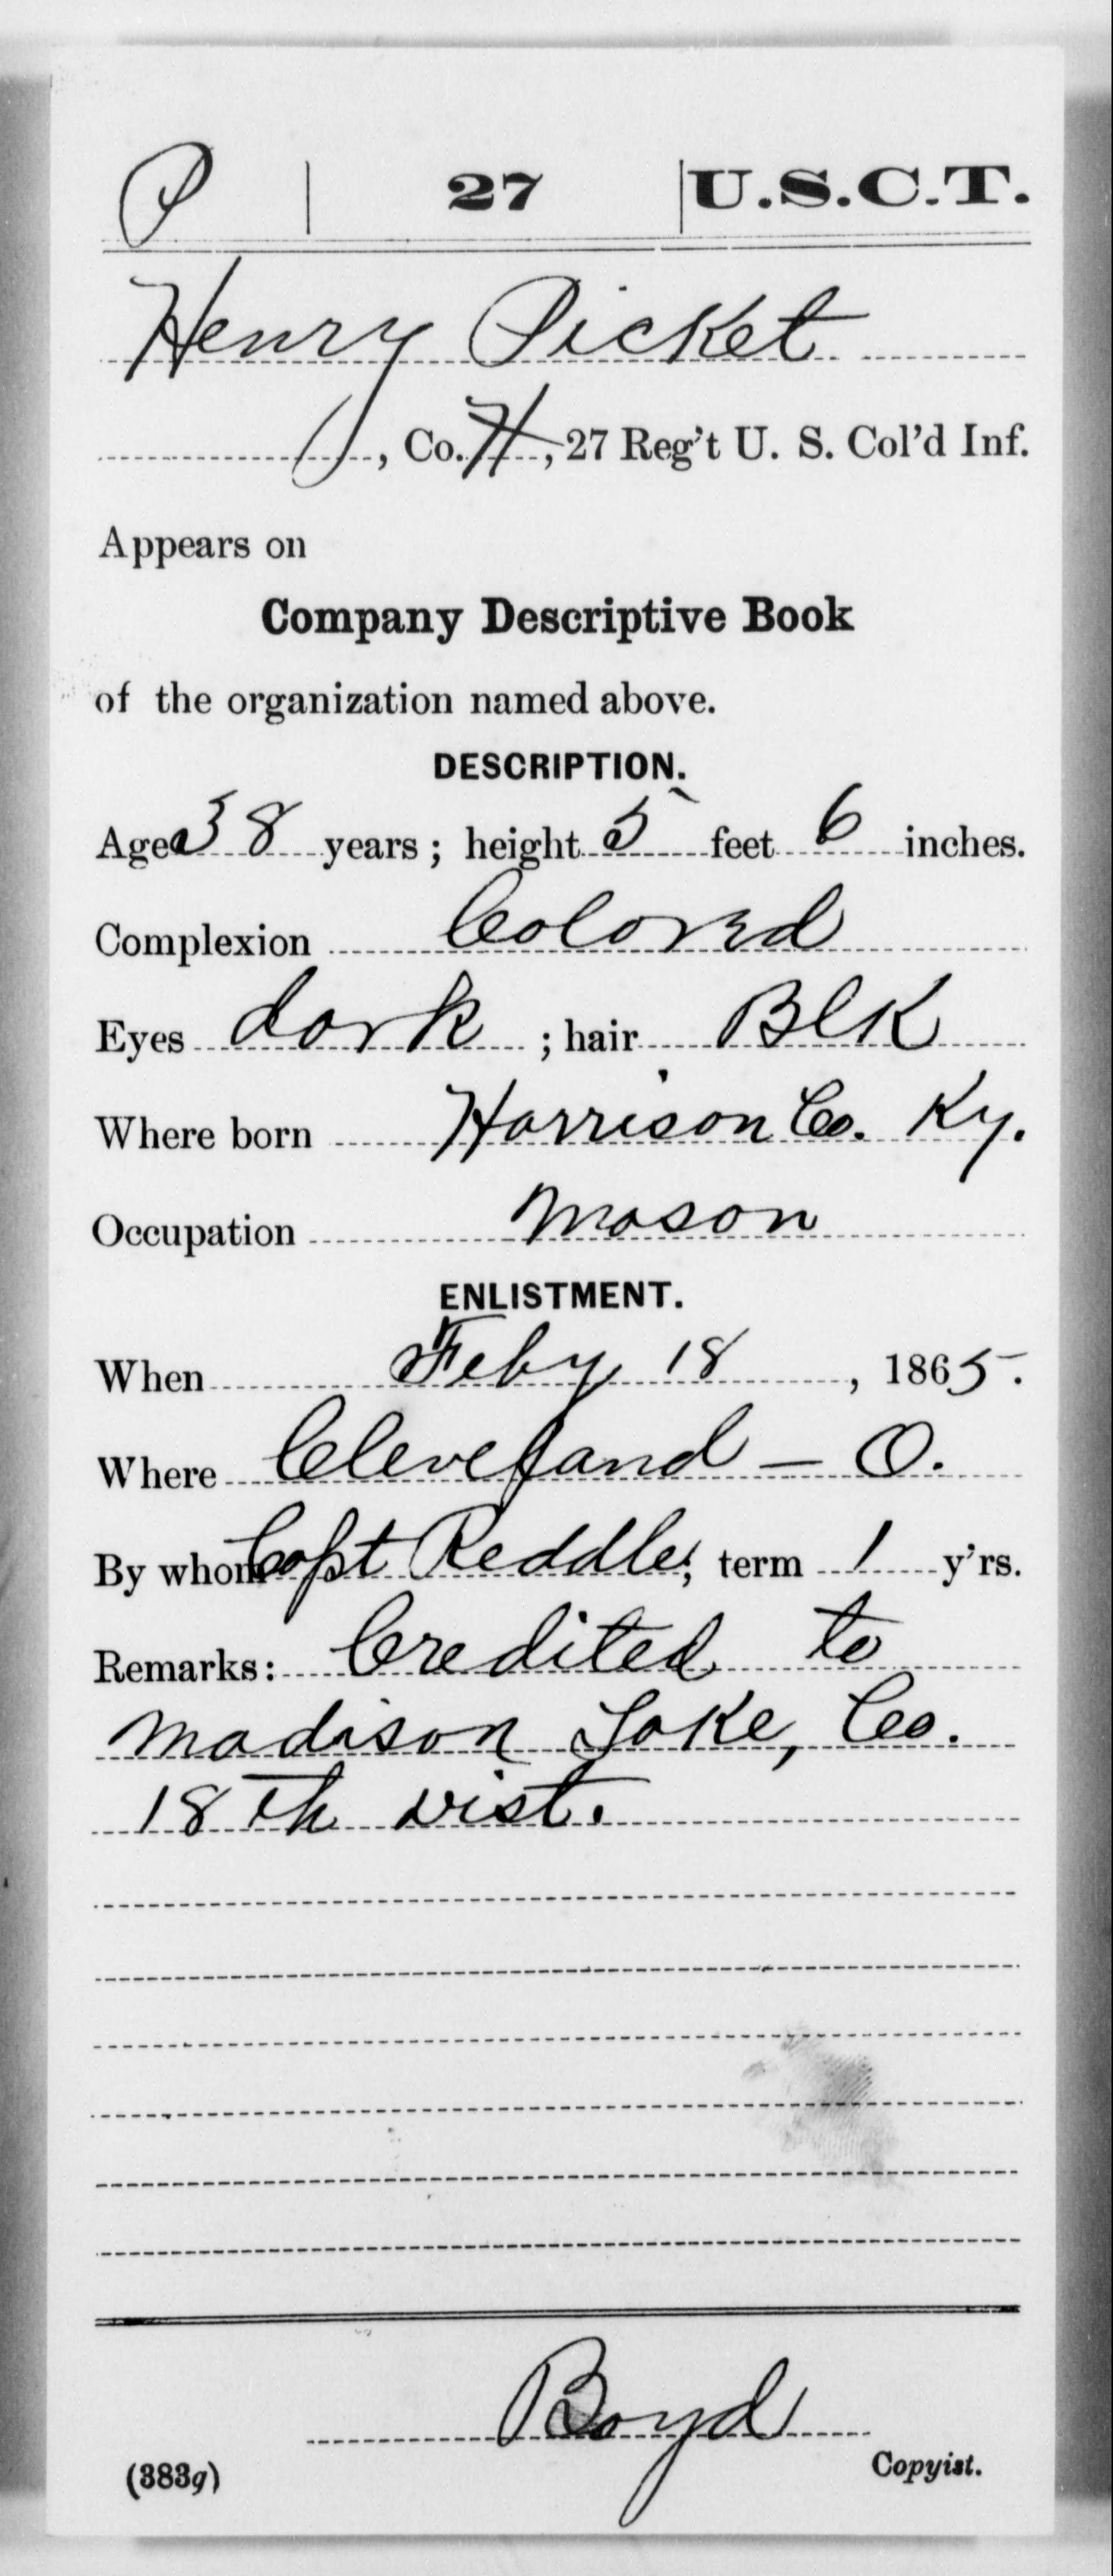 P | 27 | U.S.C.T.
Henry Picket
, Co. H, 27 Reg't U. S. Col'd Inf.
Appears on
Company Descriptive Book
of the organization named above.
DESCRIPTION.
Age 38 years; height 5 feet 6 inches.
Complexion Colored
Eyes dark; hair Blk
Where born Harrison Co. Ky.
Occupation Mason
ENLISTMENT.
When Feby 18, 1865.
Where Cleveland - O.
By whom Capt Reddle; term 1 y'rs.
Remarks: Credited to
Madison Lake, Co.
18th Dist.
Boyd
(383g) Copyist.